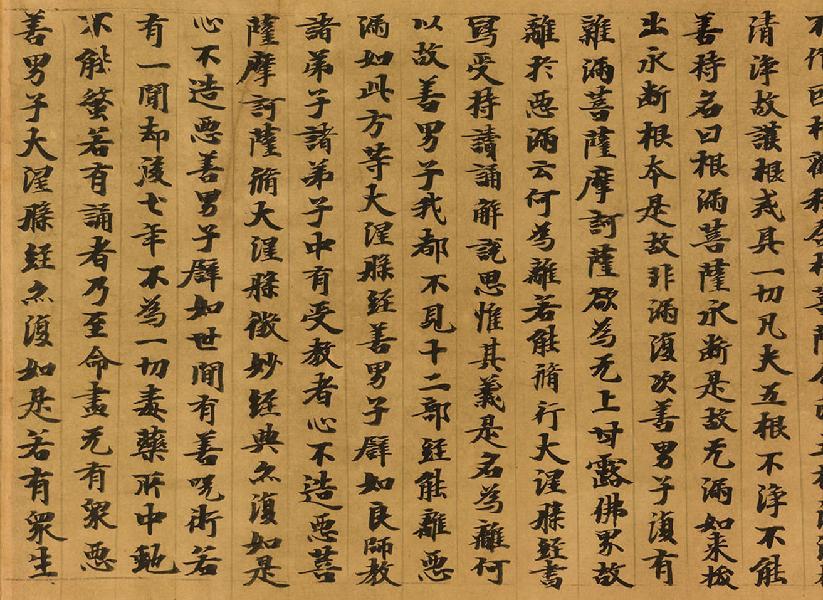 清淨故護根戒具一切凡夫五根不淨不能
善持名曰根漏菩薩永斷是故无漏如来拔
出永斷根本是故非漏復次善男子復有
離漏菩薩摩訶薩欲為无上甘露佛界故
離於惡漏云何為離若能脩行大涅槃經書
寫受持讀誦解說思惟其義是名為離何
以故善男子我都不見十二部經能離惡
漏如此方等大涅槃經善男子譬如良師教
諸弟子諸弟子中有受教者心不造惡菩
薩摩訶薩脩大涅槃微妙經典亦復如是
心不造惡善男子譬如世間有善呪術若
有一聞却後七年不為一切毒藥所中虵
不能螫若有誦者乃至命盡无有衆惡
善男子大涅槃經亦復如是若有衆生